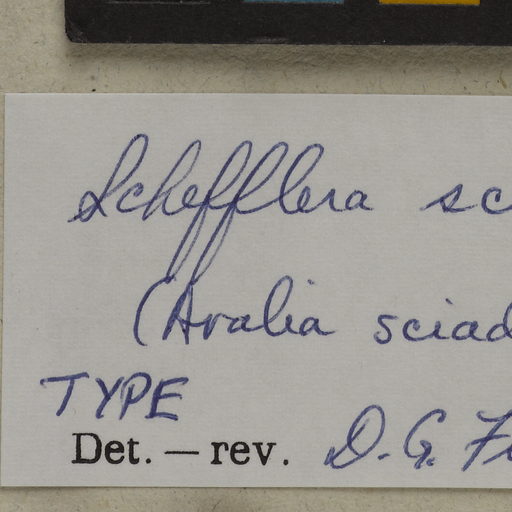 Schefflera sc
(Aralia sciad
TYPE
Det. — rev. D. G. F